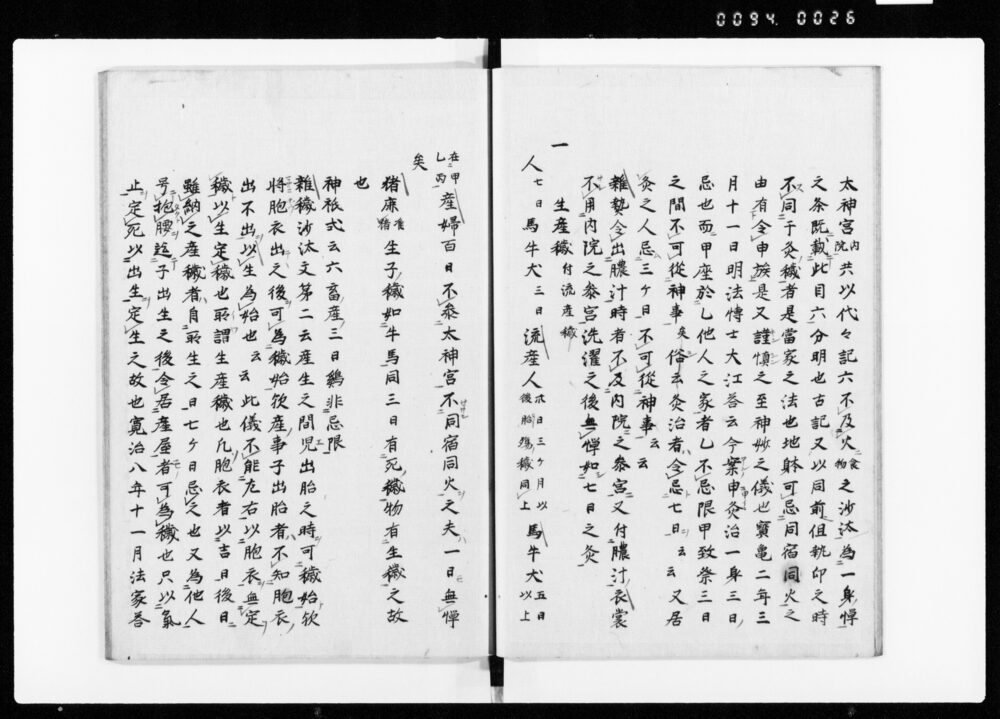 0094.0026
太神宮内院共以代々記六不及火食物之沙汰為一身憚
之条既載此目六分明也古記又以同前但執印之時
不同于灸穢者是當家之法也地躰可忌同宿同火之
由有令申族是又謹慎之至神妙之儀也寶亀二年三
月十一日明法博士大江荅云今案申灸治一身三日
忌也而甲座於乙他人之家者乙不忌限甲致祭三日
之間不可從神事矣俗云灸治者令忌七日云云又居
灸之人忌三ケ日不可從神事云云
雜勢令出膿汁時者不及内院之参宮又付膿汁衣裳
不用内院之参宮洗濯之後無憚如七日之灸
一
生産穢付流産穢
人七日馬牛犬三日流産人三ケ月以後胎殤穢同上馬牛犬五日以上
在甲乙丙産婦百日不参太神宮不同宿同火之夫一日無憚
矣
猪鹿准猪生子穢如牛馬同三日有死穢物有生穢之故
也
神祇式云六畜産三日鶏非忌限
雜穢沙汰文第二云産生之間児出胎之時可穢始欤
将胞衣出之後可為穢始欤産事子出胎者不知胞衣
出不出以生為始也云云此儀不能左右以胞衣無定
穢以生定穢也所謂生産穢也凡胞衣者以吉日後日
雖納之産穢者自所生之日七ケ日忌之也又為他人
号抱腰迄子出生之後令居産屋者可為穢也只以氣
止定死以出生定生之故也寛治八年十一月法家荅